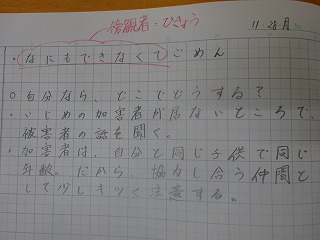 傍観者=ひきょう
11.28 月
・なにもできなくてごめん
○自分なら、どこでどうする?
・いじめの加害者が居ないところで、
被害者の話を聞く。
・加害者は、自分と同じ子供で同じ
年数。だから 協力し合う仲間と
して少しキツく注意する。